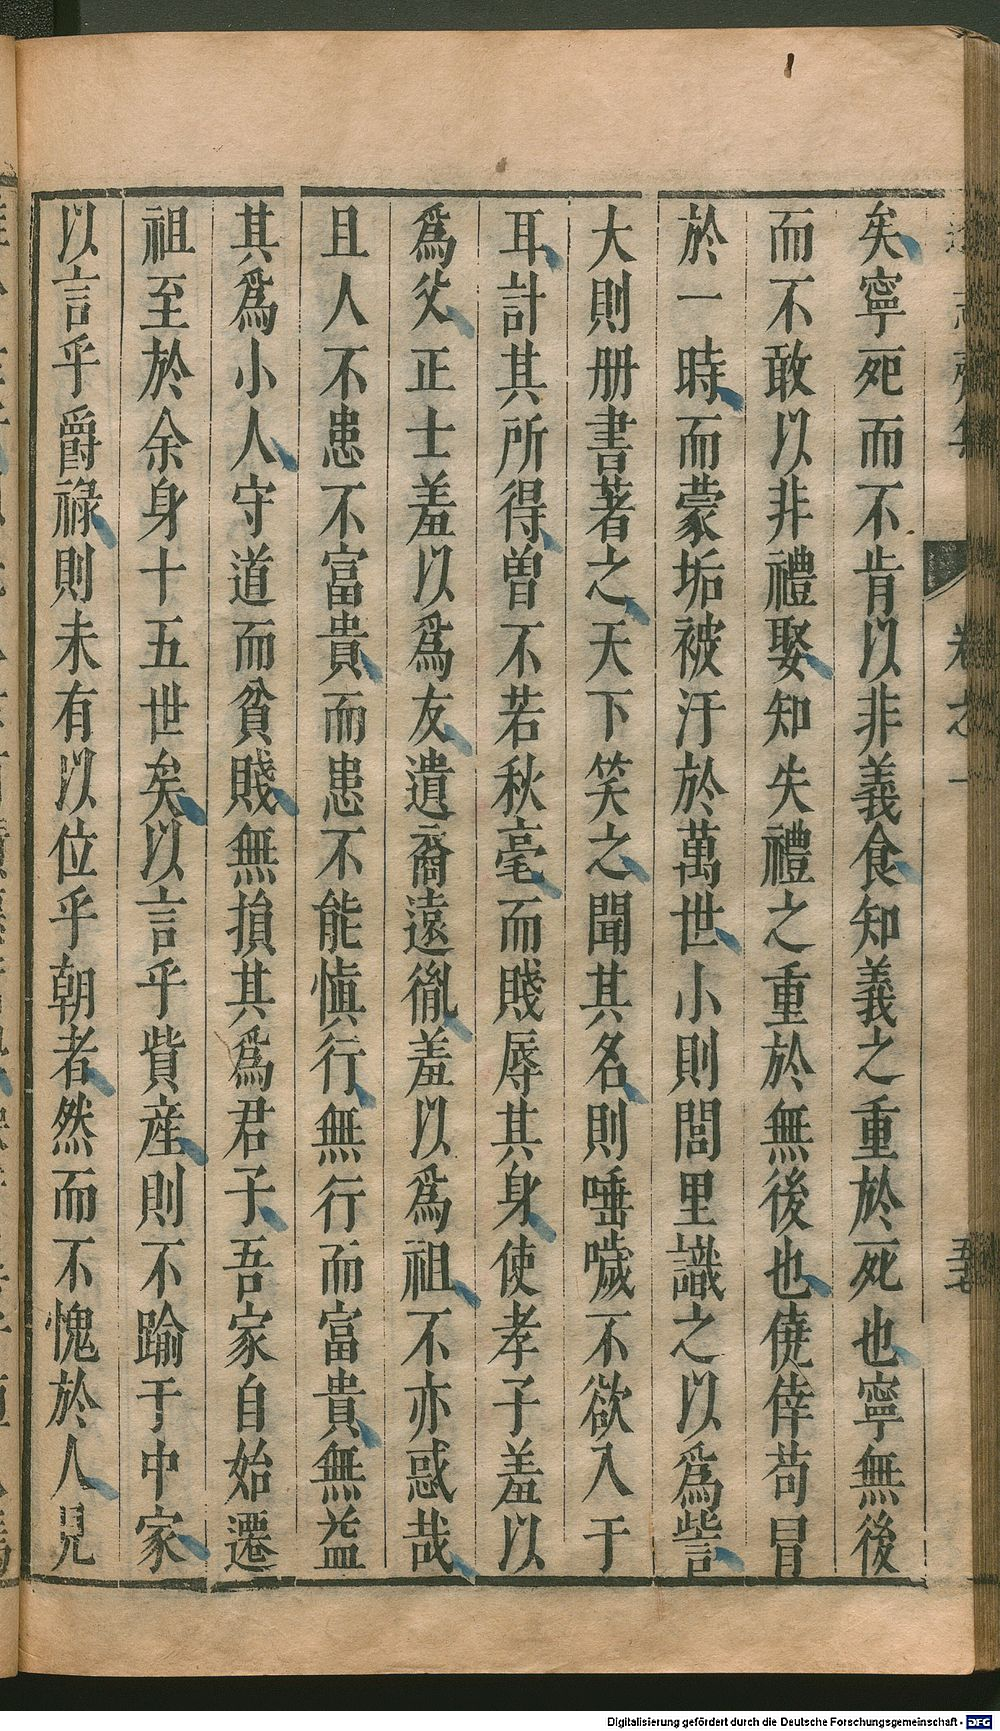 矣寧死而不肯以非義食知義之重於死也寧無後
而不敢以非禮娶知失禮之重於無後也僥倖苟冒
於一時而蒙垢被汙於萬世小則閭里識之以爲訾
大則册書著之天下笑之聞其名則唾噦不欲入于
耳計其所得曾不若秋毫而賤辱其身使孝子羞以
爲父正士羞以爲友遺裔遠胤羞以爲祖不亦惑哉
且人不患不富貴而患不能愼行無行而富貴無益
其爲小人守道而貧賤無損其爲君子吾家自始遷
祖至於余身十五世矣以言乎貲産則不踰于中家
以言乎爵祿則未有以位乎朝者然而不愧於人見
卷之一
Digitalisierung gefördert durch die Deutsche Forschungsgemeinschaft - DFG